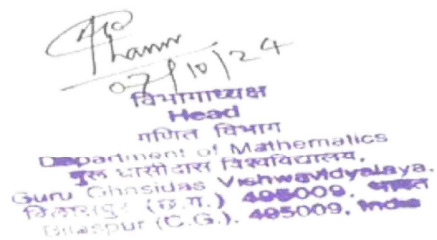 07/10/24
विभागाध्यक्ष
Head
गणित विभाग
Department of Mathematics
गुरू घासीदास विश्वविद्यालय,
Guru Ghasidas Vishwavidyalaya,
बिलासपुर (छ.ग.) 495009, भारत
Bilaspur (C.G.). 495009, India